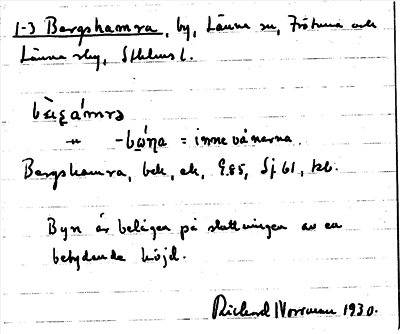 1-3 Bergshamra, by, Länna sn, Frötuna och
Länna skg, Sthlms l.
bæ̀rgsámra
" -bóna = inne vånarna
Bergshamra, bek, ek, G.85, Sj 61, kb.
Byn är belägen på sluttningen av en
betydande höjd.
Rickard Norrman 1930.